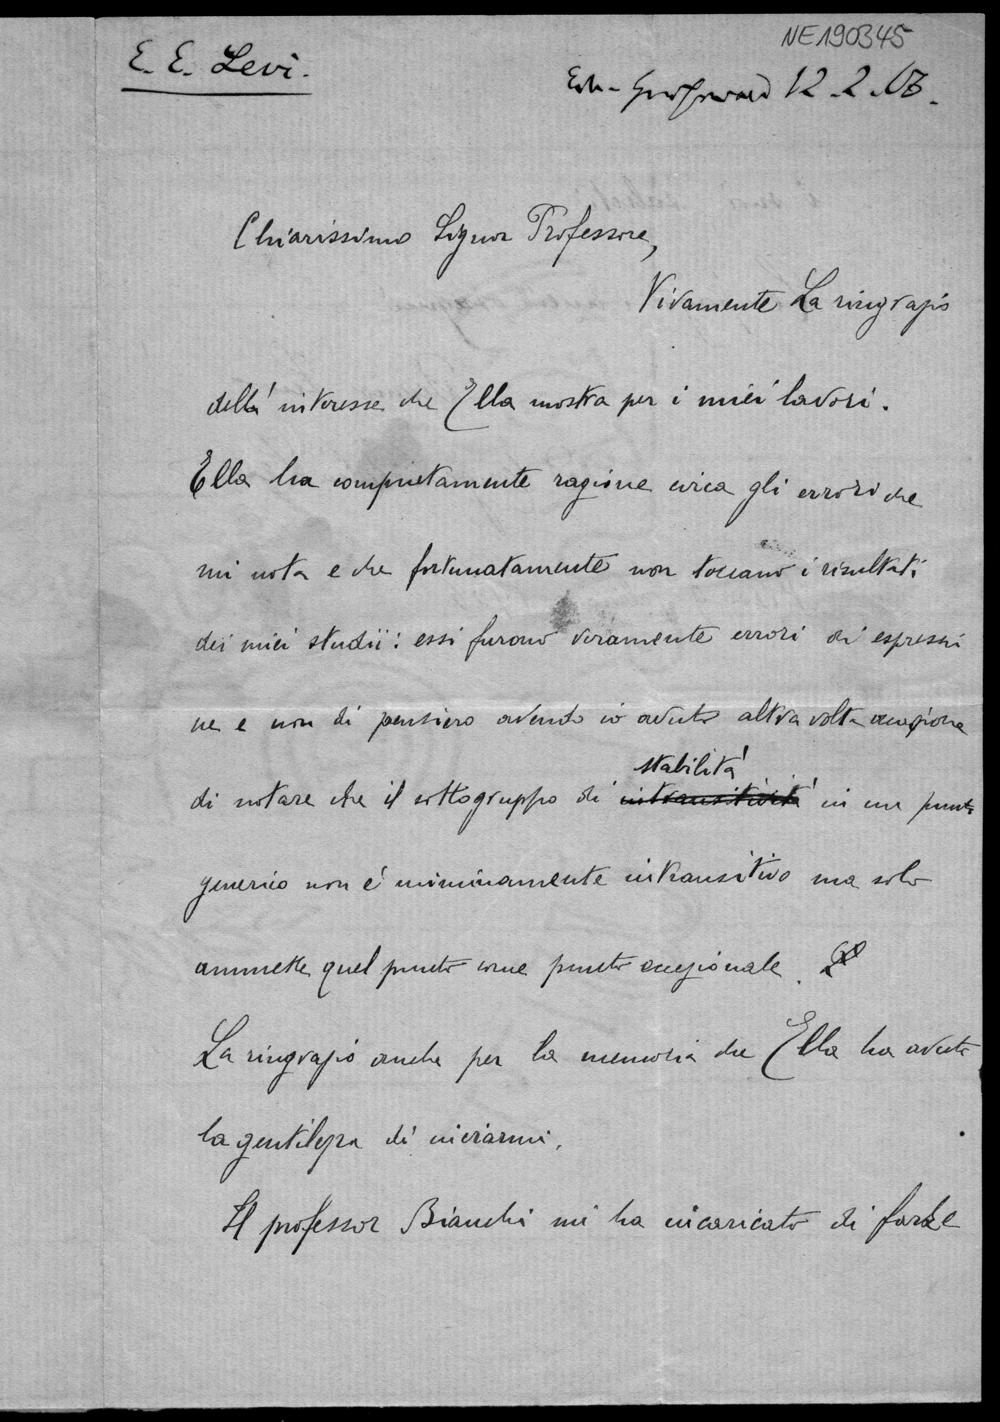 NE190345
E. E. Levi.
12.2.07.
Chiarissimo Signor Professore,
Vivamente La ringrazio
dell'interesse che Ella mostra per i miei lavori.
Ella ha completamente ragione circa gli errori che
mi nota e che fortunatamente non toccano i risultati
dei miei studii: essi furono veramente errori di espressio
ne e non di pensiero avendo io avuto altra volta occasione
stabilità
di notare che il sottogruppo di intransitività in un punto
generico non é minimamente intransitivo ma solo
ammette quel punto come punto eccezionale.
La ringrazio anche per la memoria che Ella ha avuto
la gentilezza di inviarmi.
Il professor Bianchi mi ha incaricato di farLe